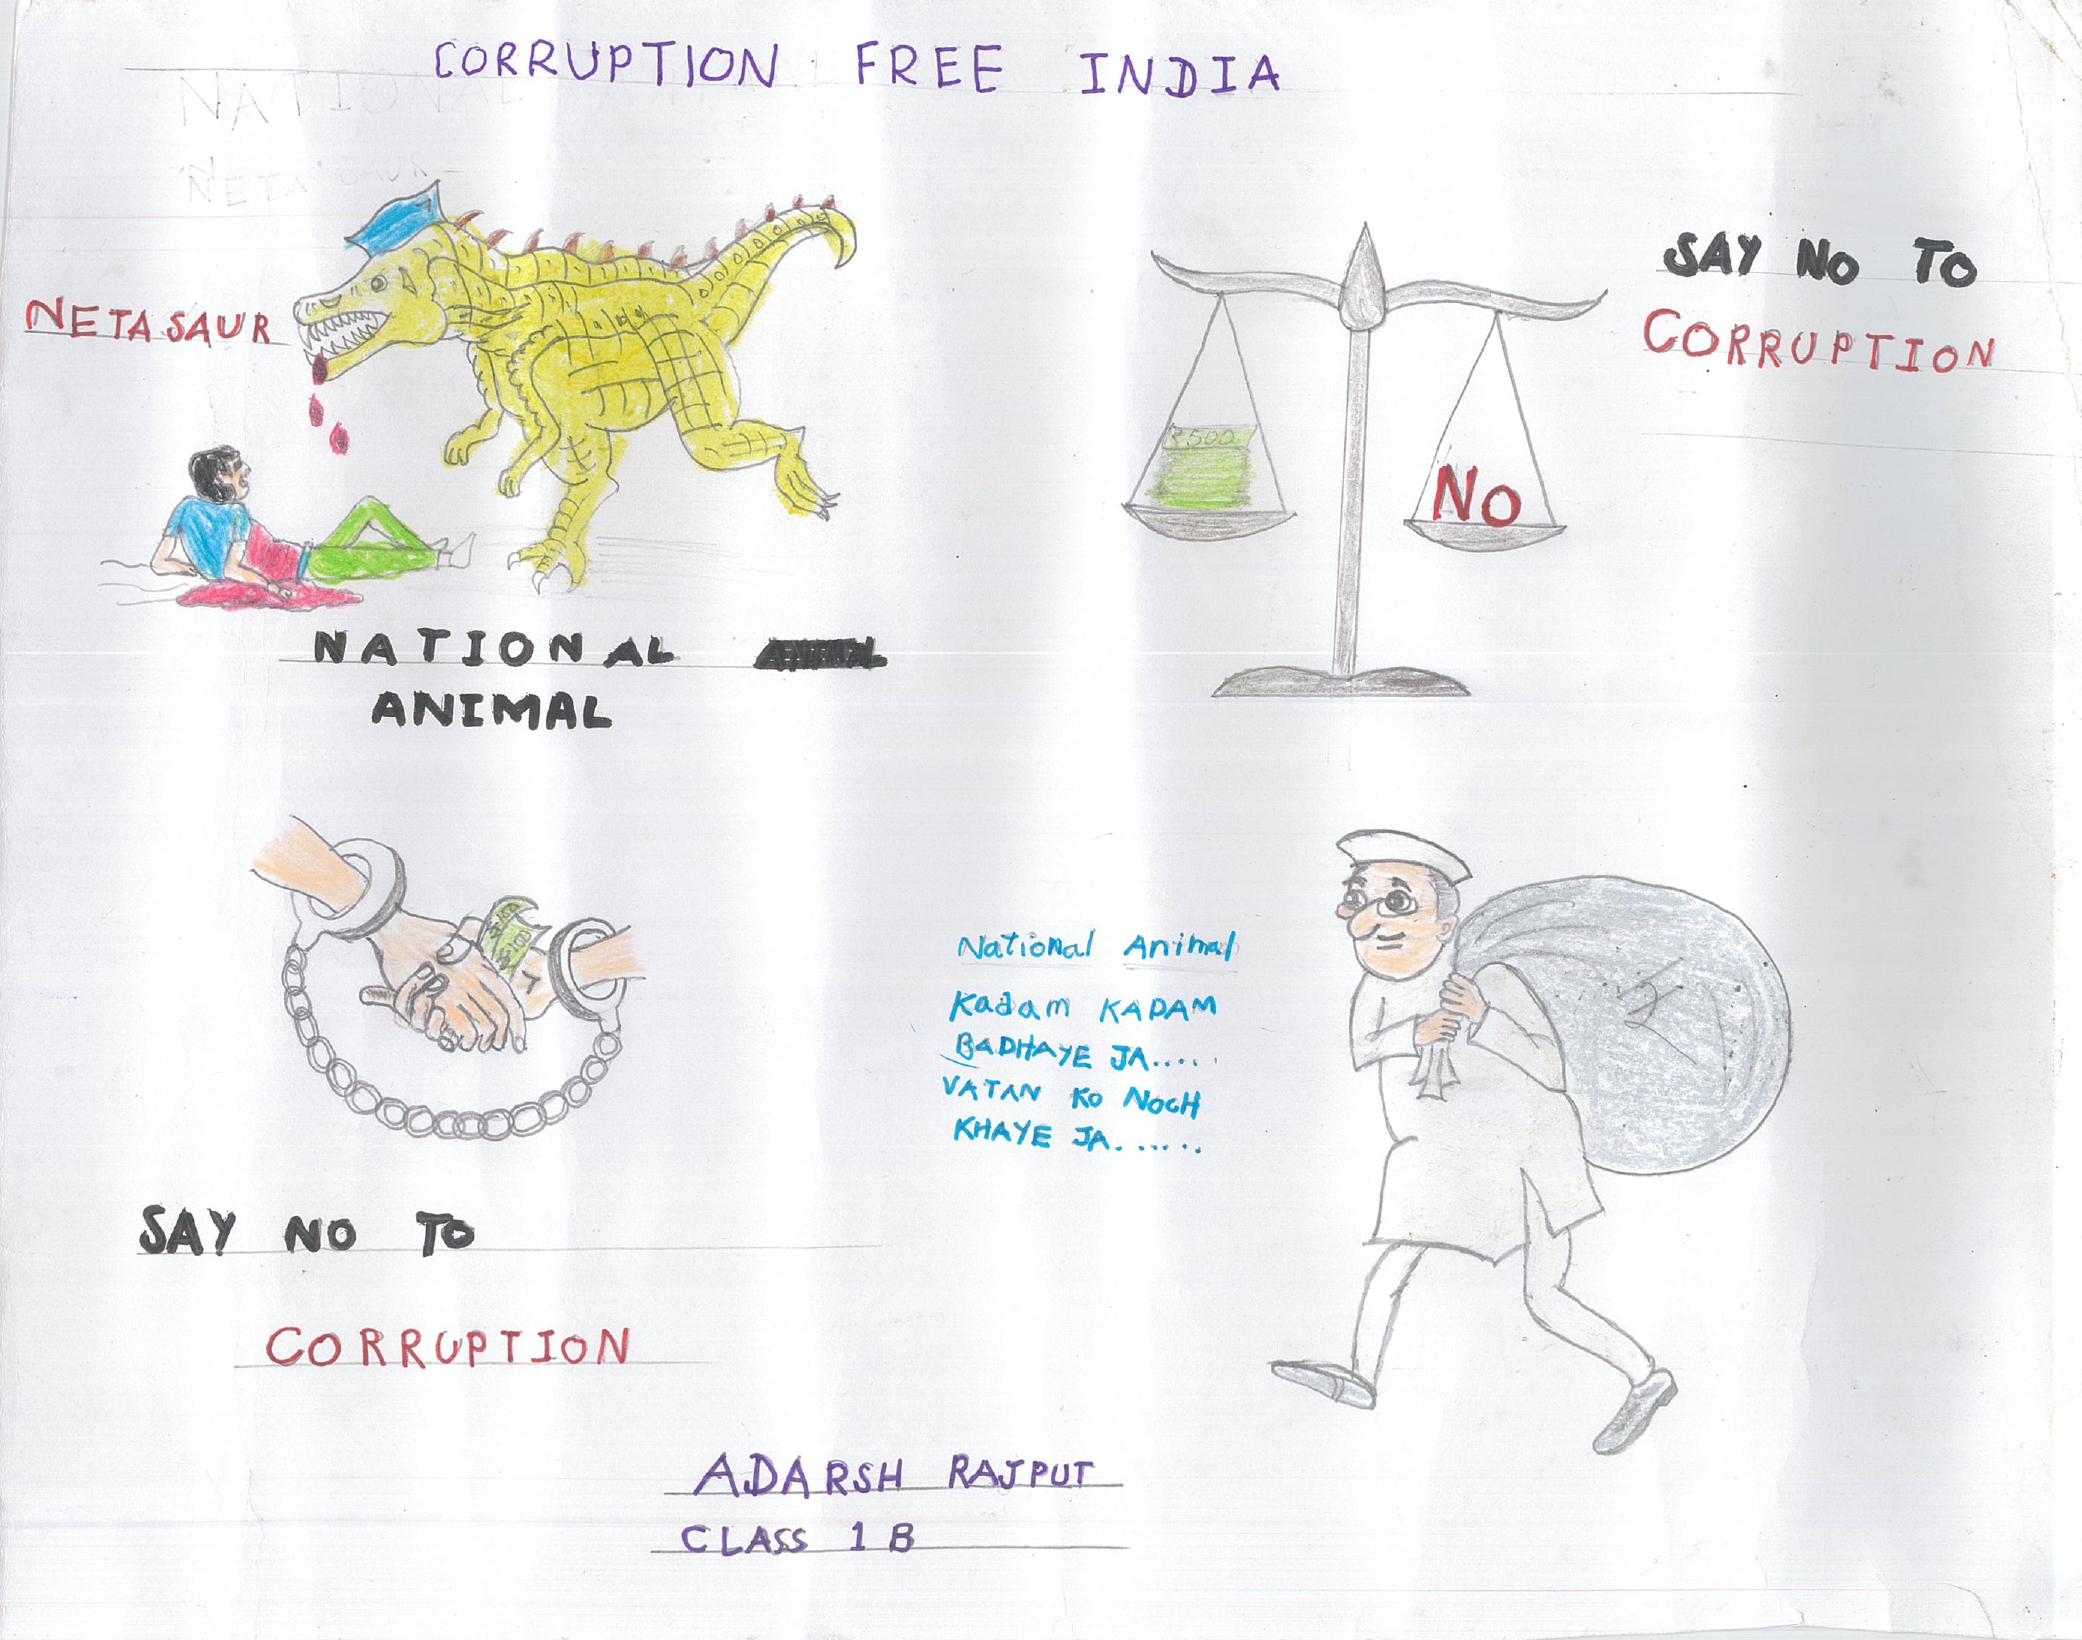 CORRUPTION FREE INDIA
NATIONAL
NETASAUR
NETASAUR
NATIONAL
ANIMAL
SAY NO TO
CORRUPTION
₹500
NO
100
SAY NO TO
CORRUPTION
National Animal
Kadam KADAM
BADHAYE JA.....
VATAN KO NOCH
KHAYE JA......
₹
ADARSH RAJPUT
CLASS 1 B